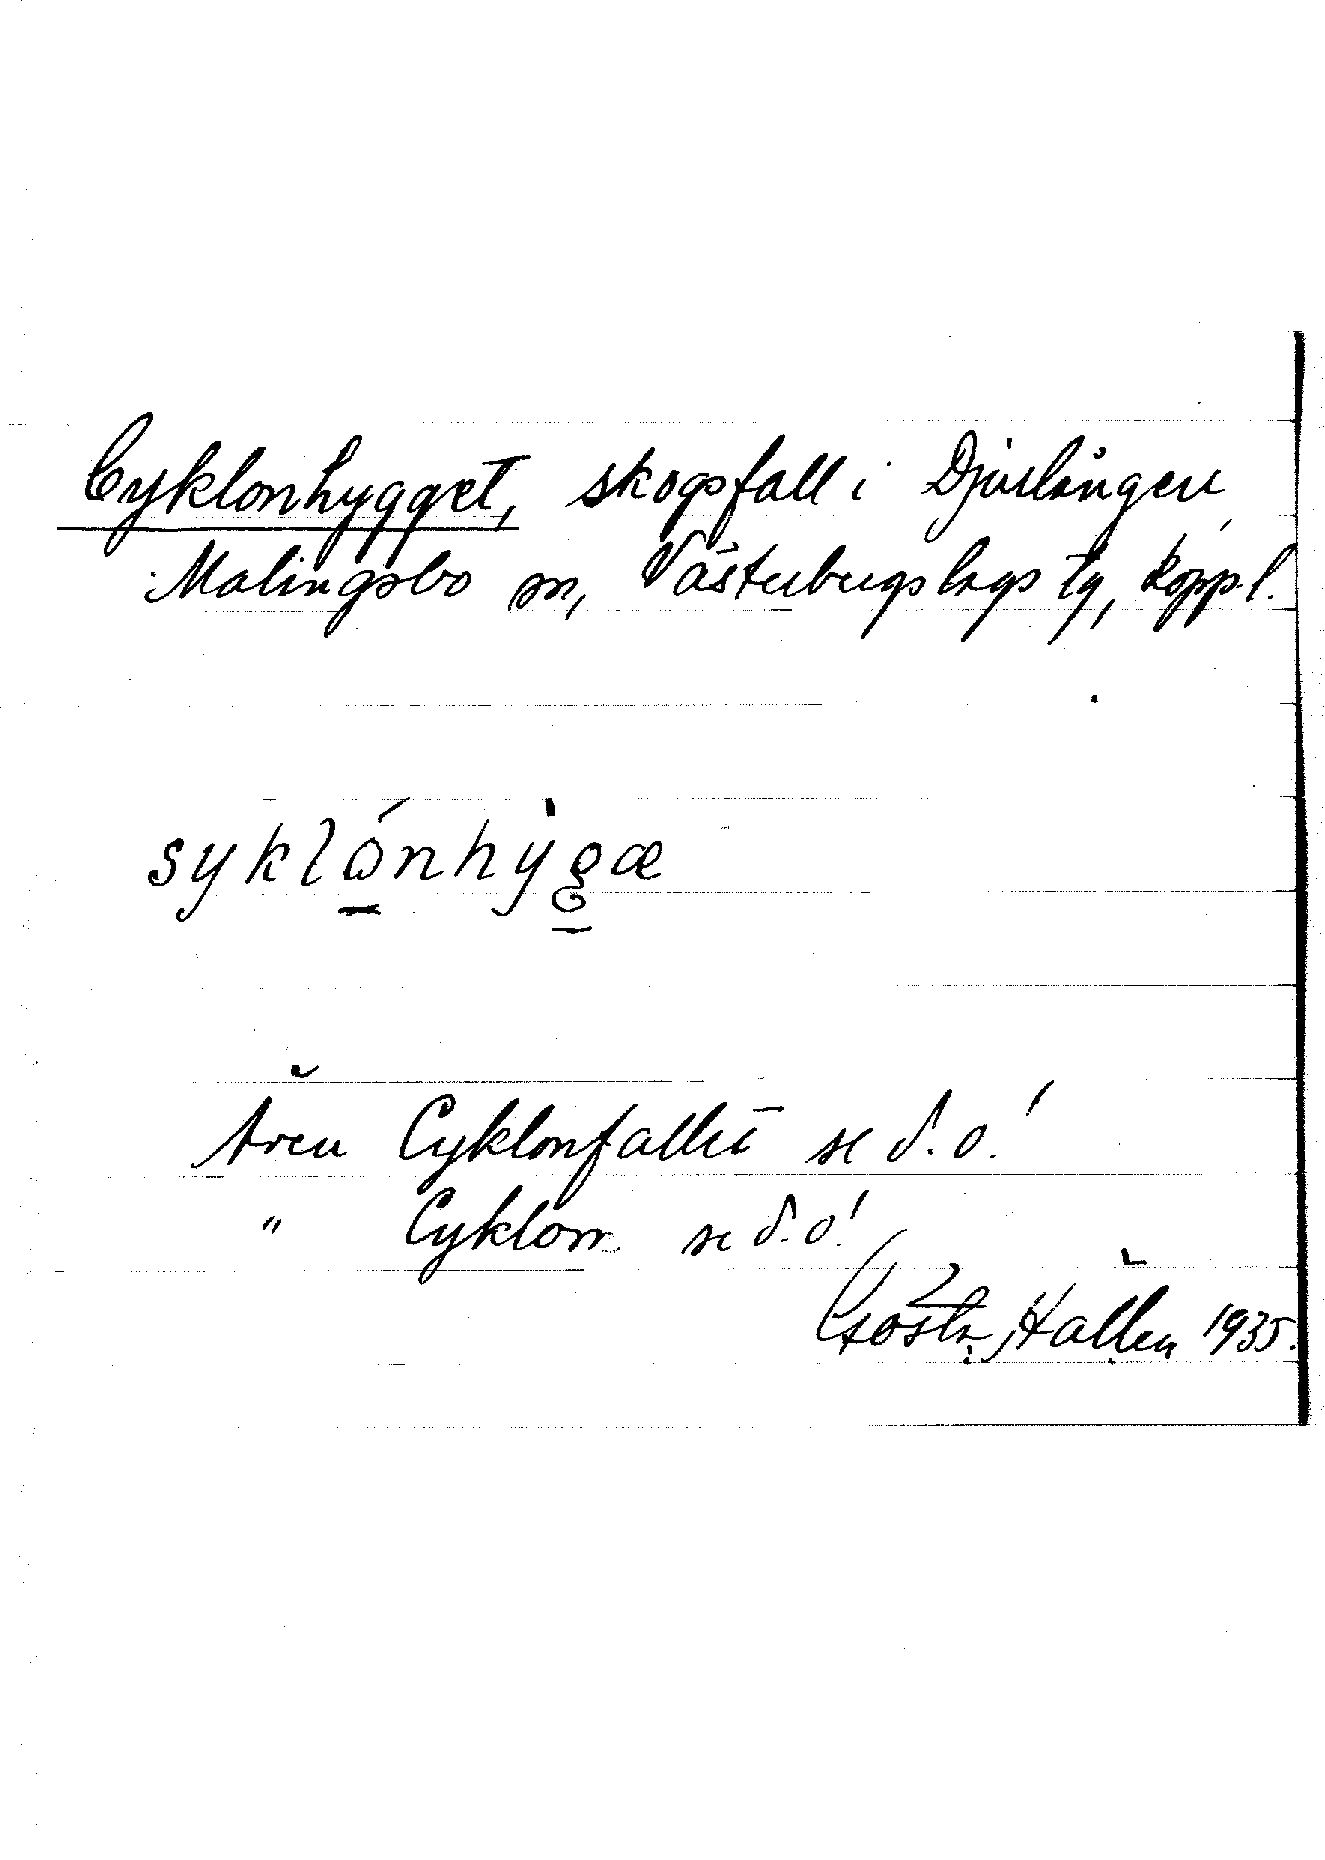 Cyklonhygget, skogsfall i Djurlången,
Malingsbo sn, Västerbergslags tg, Koppl.
syklónhỳgæ
Även Cyklonfallet se d. o.!
" Cyklon se d. o.!
Gösta Hallén 1935.